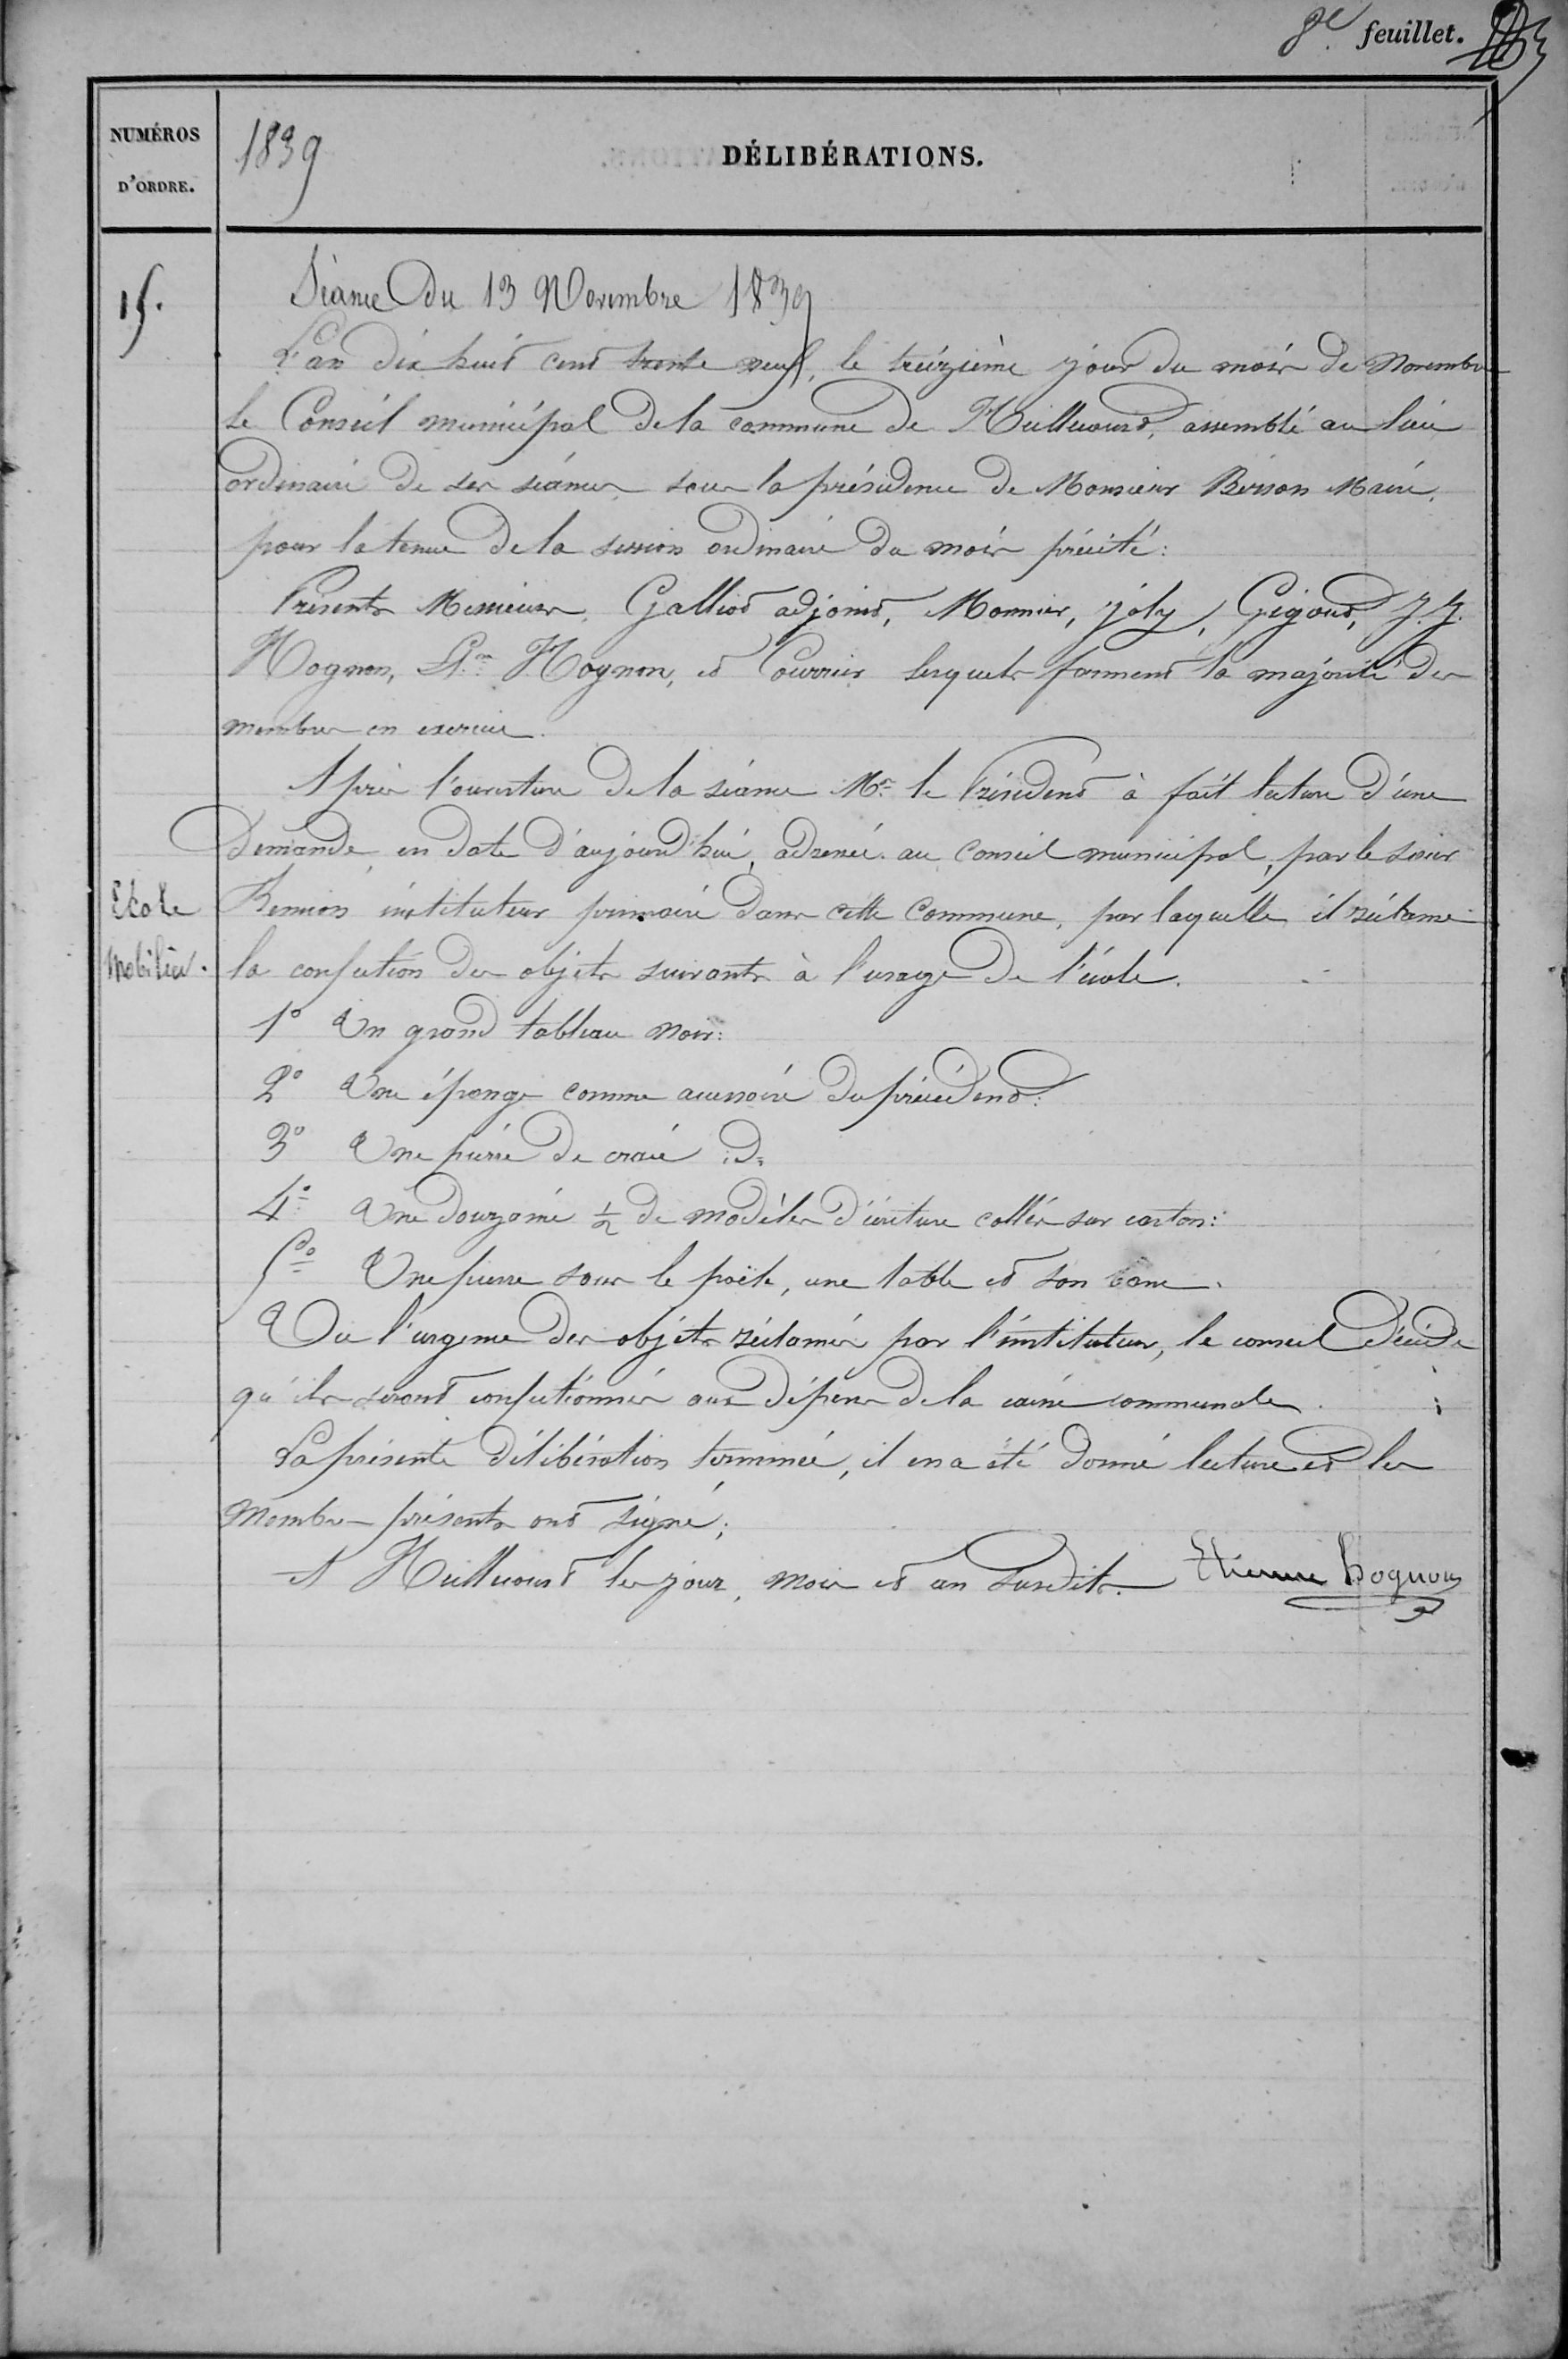 8e feuillet.
NUMÉROS D'ORDRE.
1839
DÉLIBÉRATIONS.
15.
Séance du 13 Novembre 1839
L'an dix huit cent trente neuf, le treizième jour du mois de Novembre
le Conseil municipal de la commune de Huillecourt, assemblé au lieu
ordinaire de ses séances sous la présidence de Monsieur Maire,
pour la tenue de la session ordinaire du mois précité:
Présents Messieurs, Galliot adjoint, Monnier, joly, Gigout, J. J.
Hognon, Et.ne Hognon, et Courrier lesquels forment la majorité des
membres en exercice.
Après l'ouverture de la séance Mr. le Président à fait lecture d'une
Demande, en date d'aujourd'hui, adressée au conseil municipal, par le sieur
Ecole
Mobilier.
instituteur primaire dans cette Commune, par laquelle il réclame
la confection des objets suivants à l'usage de l'école.
1° Un grand tableau noir:
2° Une éponge comme accessoire du précédent:
3° Une pierre de craie id.
4° Une douzaine 1/2 de modèles d'écriture collés sur carton:
5° Une pierre sous le poële, une table et son banc.
Vu l'urgence des objets réclamés par l'instituteur, le conseil décide
qu'ils seront confectionnés aux dépens de la caisse communale.
La présente délibération terminée, il en a été donné lecture et les
Membres présents ont signé;
A Huillecourt les jour, mois et an susdits. Etienne hognon